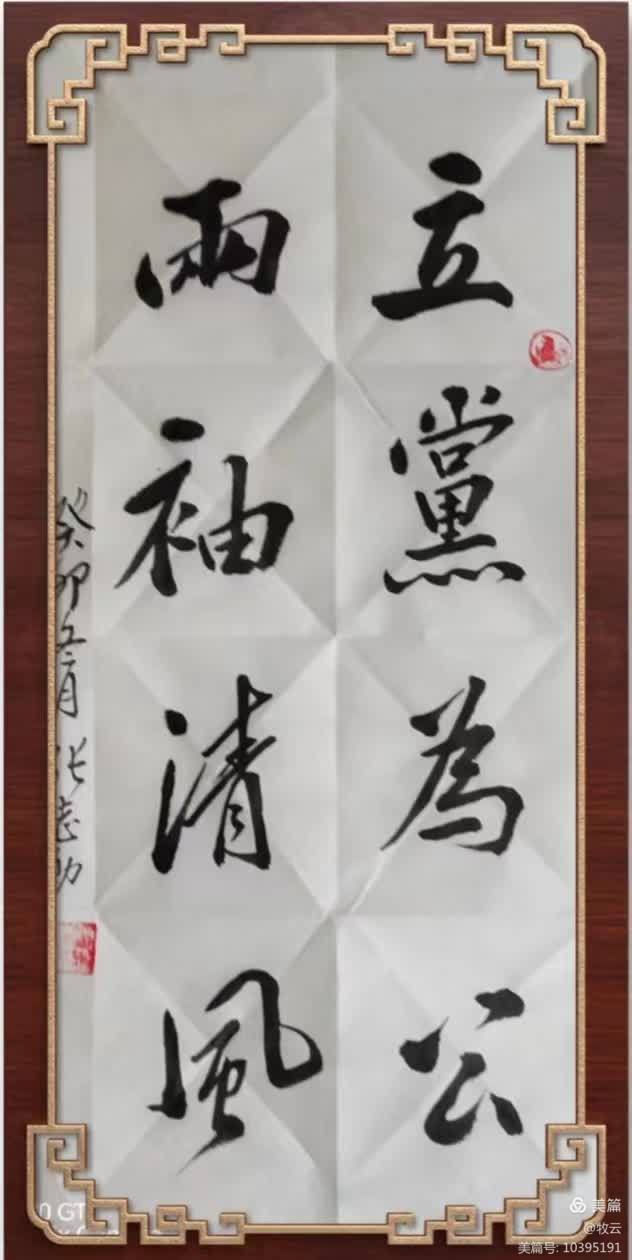 立黨為公
兩袖清風
癸卯五月 张志功
美篇
@牧云
美篇号: 10395191